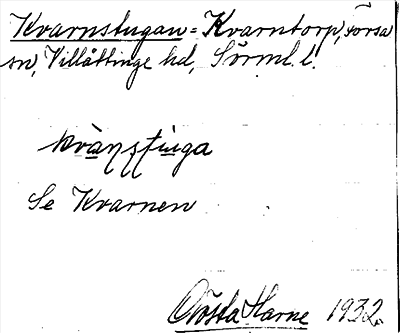 Kvarnstugan = Kvarntorp, Forsa
sn, Villåttinge hd, Sörml. l.
Se Kvarnen
Gösta Harne 1932.